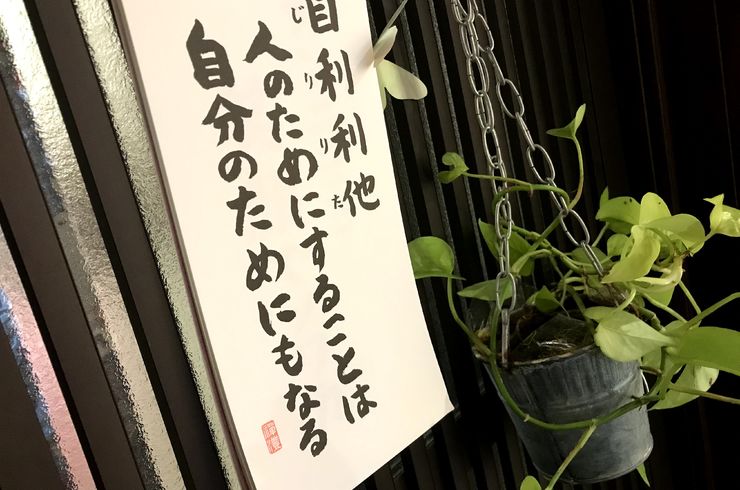 自利利他
じりりた
人のためにすることは
自分のためにもなる